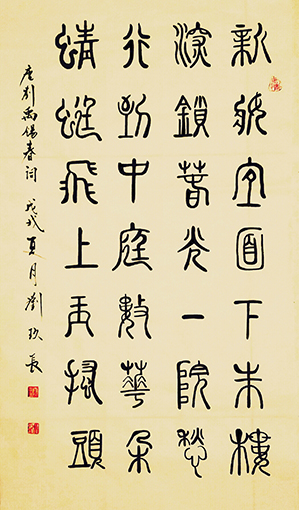 新妝宜面下朱樓
深鎖春光一院愁
行到中庭數華朵
蜻蜓飛上玉搔頭
唐刘禹锡春词 戊戌夏月劉玖長